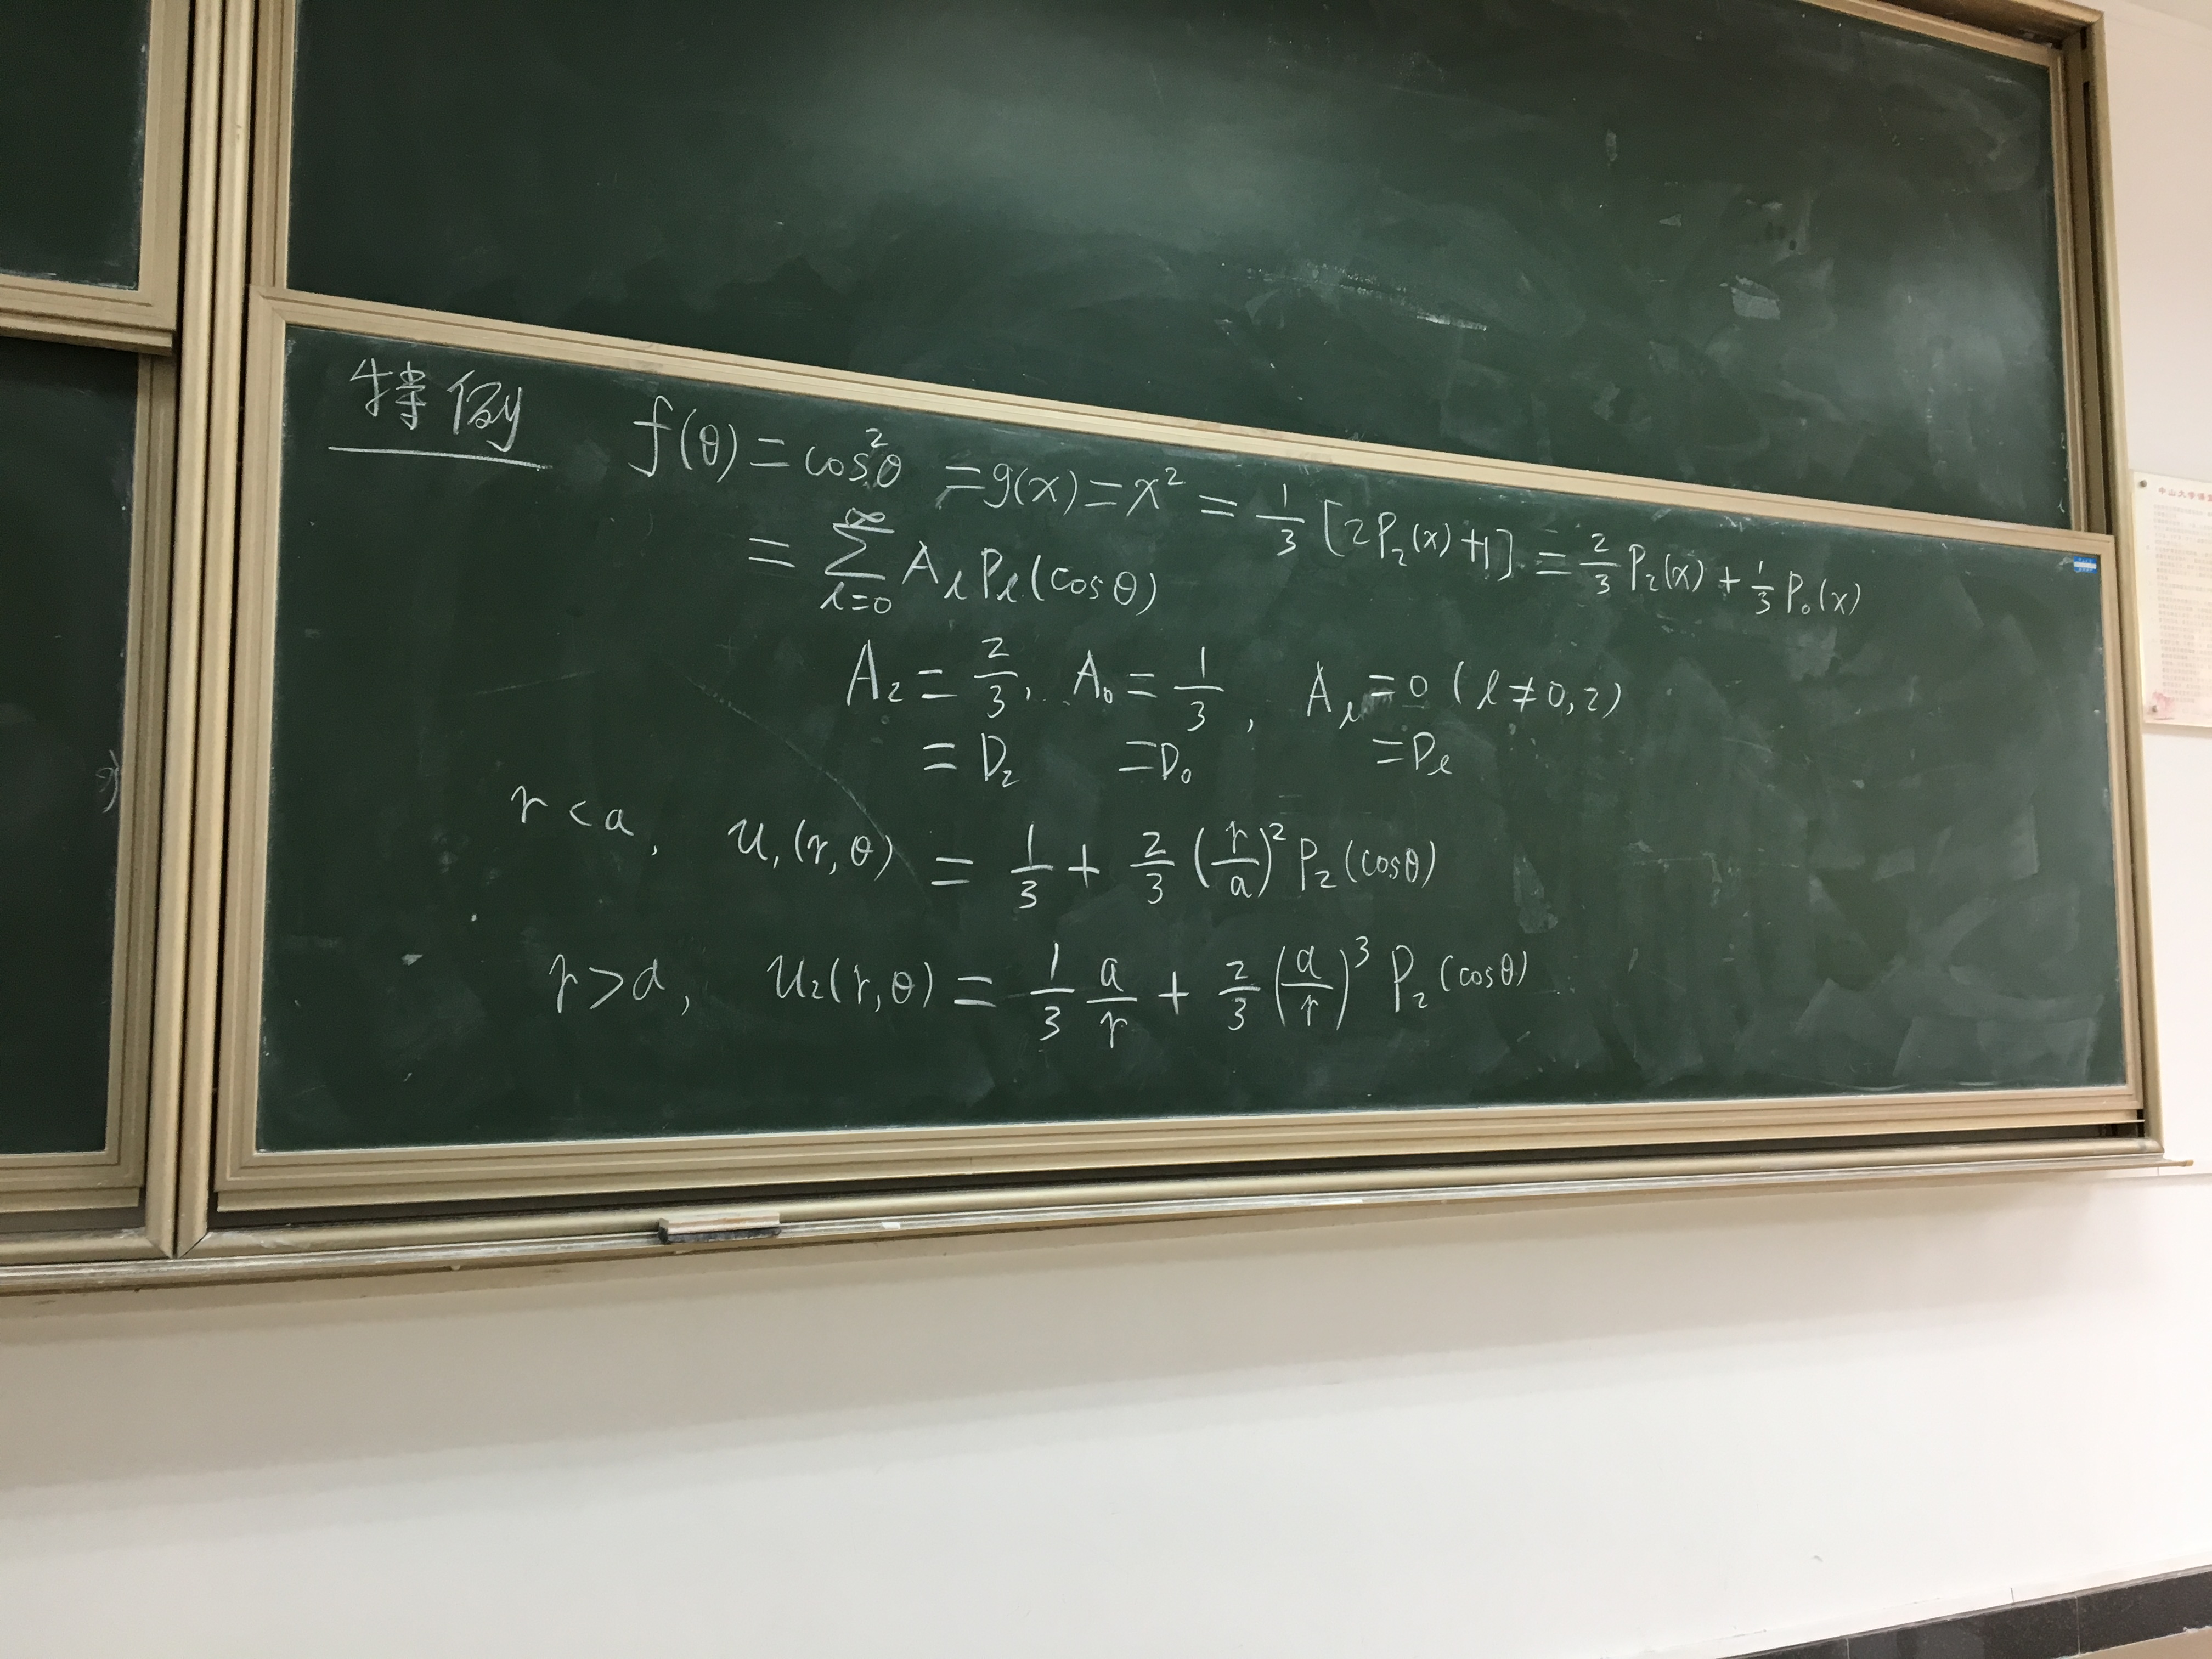 特例 f(θ) = cos²θ = g(x) = x² = 1/3 [2P₂(x) + 1] = 2/3 P₂(x) + 1/3 P₀(x)
= ∑_{l=0}^{∞} A_l P_l (cos θ)
A₂ = 2/3, A₀ = 1/3, A_l = 0 (l ≠ 0, 2)
= D₂ = D₀ = D_l
r < a, u₁(r, θ) = 1/3 + 2/3 (r/a)² P₂(cosθ)
r > a, u₂(r, θ) = 1/3 a/r + 2/3 (a/r)³ P₂(cosθ)
中山大学课室